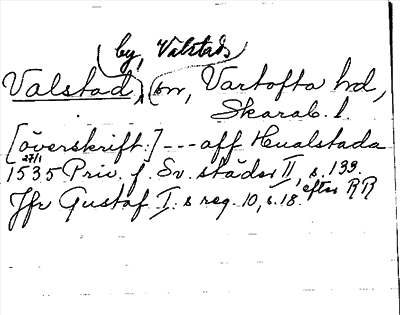 by, Valstads
Valstad, sn, Vartofta hd,
Skarab. l.
[överskrift:] --- aff Hualstada
27/1
1535 Priv. f. Sv. städer II, s. 133.
Jfr Gustaf I:s reg. 10, s. 18. efter RR